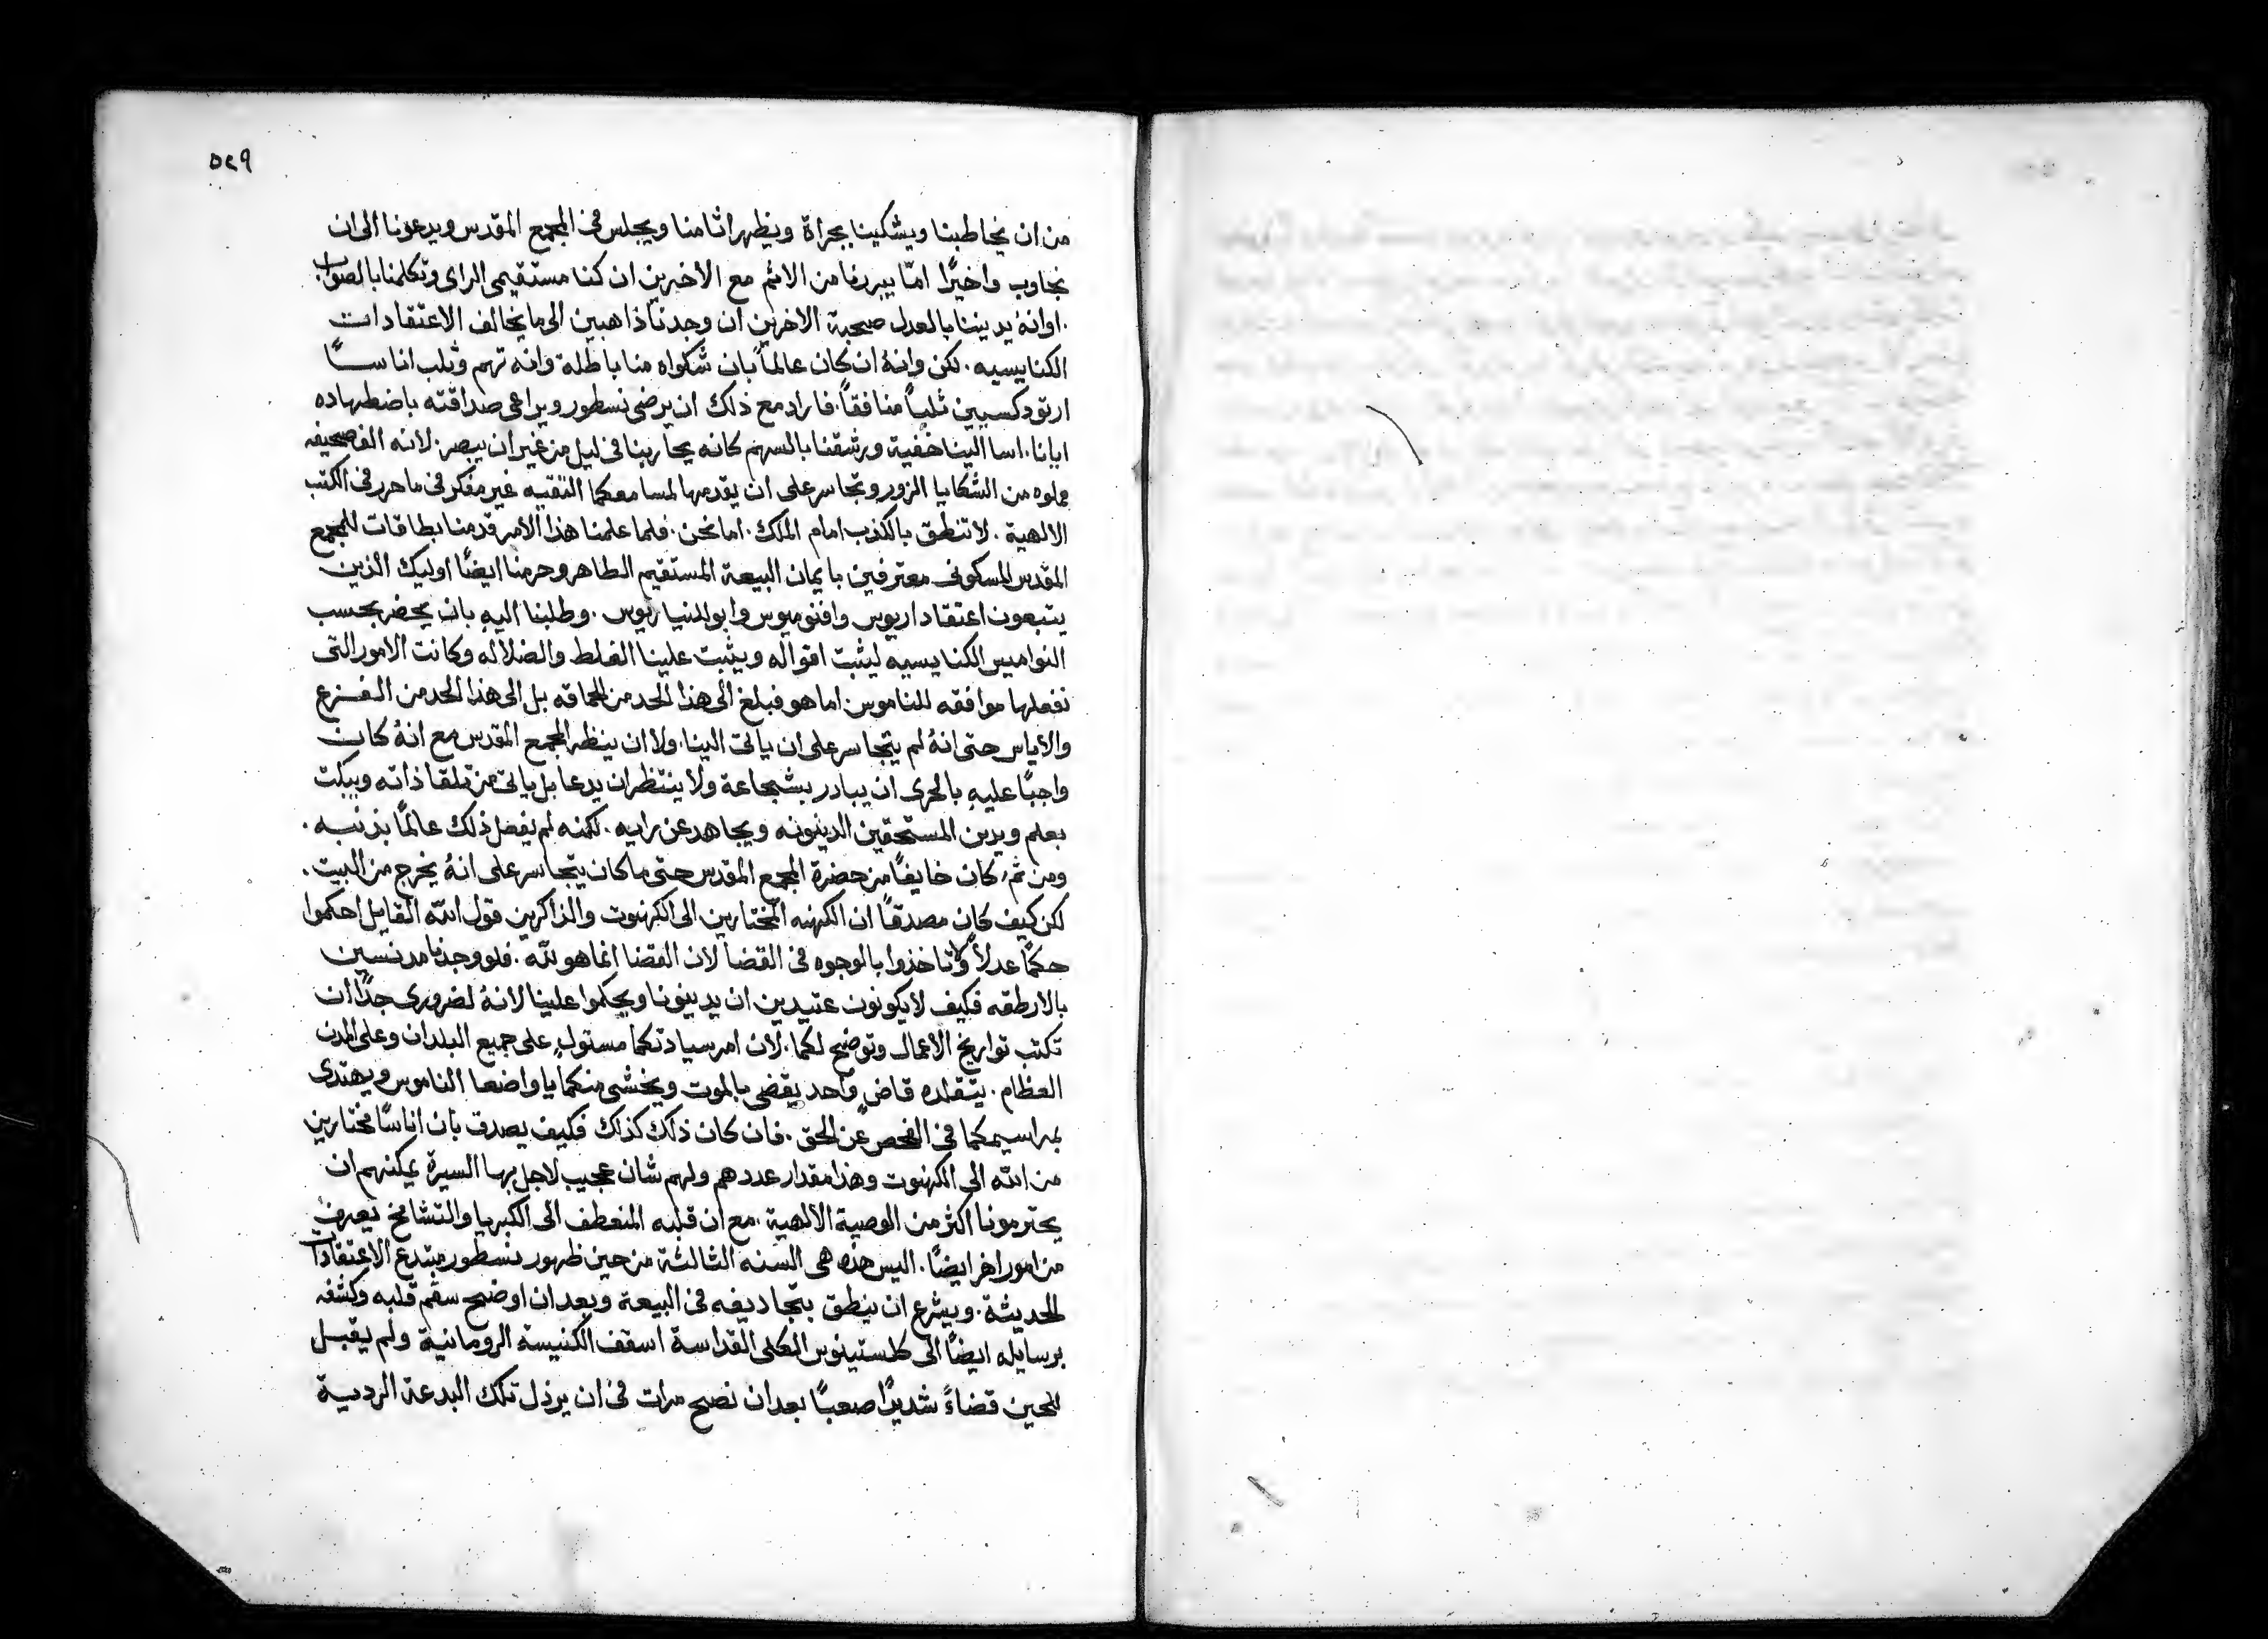 ٥٢٩
من ان يخاطبنا ويشكينا بجراة ويظهر اثامنا ويجلس في المجمع المقدس ويدعونا الى ان
نجاوب واخيرًا امّا يبررنا من الاثم مع الاخرين ان كنا مستقيمى الراى وتكلمنا بالصواب
. اوانهُ يديننا بالعدل صحبة الاخرين ان وجدنا ذاهبين الى ما يخالف الاعتقادات
الكنايسيه . لكن وانهُ ان كان عالمًا بان شكواه منا باطلة وانه تهم وثلب اناسًا
ارتودكسيين ثلبًا منافقًا . فاراد مع ذلك ان يرضى نسطور ويراعى صداقته باضطهاده
ايانا . اسا الينا خفية ورشقنا بالسهم كانه يحاربنا في ليل من غير ان يبصر . لانه الف صحيفه
مملوه من الشكايا الزور وتجاسر على ان يقدمها لمسامعكما النقيه غير مفكر في ما حرر في الكتب
الالهية . لا تنطق بالكذب امام الملك . اما نحن . فلما علمنا هذا الامر قدمنا بطاقات للمجمع
المقدس المسكونى معترفين بايمان البيعة المستقيم الطاهر وحرمنا ايضًا اوليك الذين
يتبعون اعتقاد اريوس وافنوميوس وابولليناريوس . وطلبنا اليهِ بان يحضر بحسب
النواميس الكنايسيه ليثبت اقواله ويثبت علينا الغلط والضلاله وكانت الامور التى
نفعلها موافقه للناموس . اما هو فبلغ الى هذا الحد من الحماقه بل الى هذا الحد من الفزع
والاياس حتى انهُ لم يتجاسر على ان ياتى الينا . ولا ان ينظر المجمع المقدس مع انهُ كان
واجبًا عليهِ بالحرى ان يبادر بشجاعة ولا ينتظر ان يدعا بل ياتى من تلقا ذاته ويبكت
بعلم ويدين المستحقين الدينونه ويجاهد عن رايه . لكنه لم يفعل ذلك عالمًا بذنبه .
ومن ثم كان خايفًا من حضرة المجمع المقدس حتى ما كان يتجاسر على انهُ يخرج من البيت .
لكن كيف كان مصدقًا ان الكهنه المختارين الى الكهنوت والذاكرين قول الله القايل احكموا
حكمًا عدلاً ولا تاخذوا بالوجوه في القضا لان القضا انما هو لله . فلو وجدنا مدنسين
بالارطقه فكيف لا يكونون عتيدين ان يدينونا ويحكموا علينا لانهُ لضرورى جدًا ان
تكتب تواريخ الاعمال وتوضح لكما . لان امر سيادتكما مستولٍ على جميع البلدان وعلى المدن
العظام . يتقلده قاضٍ واحد يقضى بالموت ويخشى منكما يا واضعا الناموس ويهتدى
بمراسيمكما في الفحص عن الحق . فان كان ذلك كذلك فكيف يصدق بان اناسًا مختارين
من الله الى الكهنوت وهذا مقدار عددهم ولهم شان عجيب لاجل بها السيرة يمكنهم ان
يحترمونا اكثر من الوصية الالهية . مع ان قلبه المنعطف الى الكبريا والتشامخ يعرف
من امور اخر ايضًا . اليس هذه هى السنه الثالثة من حين ظهور نسطور مبتدع الاعتقادات
الحديثة . ويشرع ان ينطق بتجاديفه في البيعة وبعد ان اوضح سقم قلبه وكشفه
برسايله ايضًا الى كلستينوس الكلى القداسة اسقف الكنيسة الرومانية ولم يقبل
للحين قضاءً شديدًا صعبًا بعد ان نصح مرات في ان يرذل تلك البدعة الردية